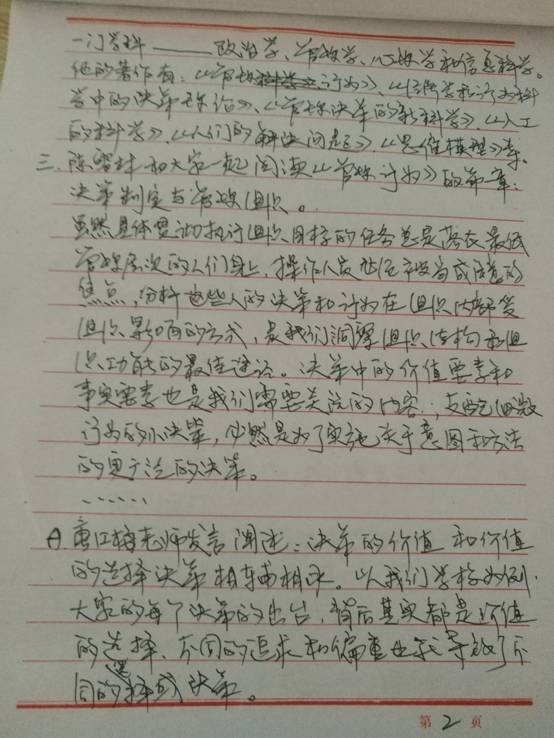 一门学科——政治学、管理学、心理学和信息科学。
他的著作有：《管理行为》、《经济学和行为科
学中的决策理论》、《管理决策的新科学》、《人工
的科学》、《人们的解决问题》《思维模型》等。
三、陈 和大家一起阅读《管理行为》的第一章：
决策制定与管理组织。
虽然具体贯彻执行组织目标的任务总是落在最低
管理层次的人们身上，操作人员也应当成注意的
焦点，分析这些人的决策和行为在组织内部受
组织影响的方式，是我们洞察组织结构和组
织功能的最佳途径。决策中的价值要素和
事实要素也是我们需要关注的内容；支配细微
行为的小决策，必然是为了实施关于意图和方法
的更广泛的决策。
······
A.黄江梅老师发言阐述：决策的价值和价值
的选择决策相辅相成。以我们学校为例，
大家的每个决策的出台，背后其实都是价值
的选择，不同的追求和偏重也就导致了不
同的选择或决策。
第 2 页